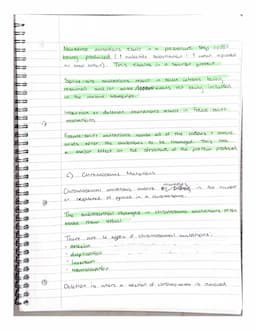 Nonsense mutations result in a premature stop codon
being produced (
or near start). This results in a shorter protein
Splice-site mutations result in some introns being
retained and/or some exons not being included
in the mature transcript.
Insertion or deletion mutations result in frame-shift
mutations
Frame-shift mutations cause all of the codons and amino
acids after the mutation to be changed. This has
a major effect on the structure of the protein produced
c) Chromosome Mutations
Chromosome mutations involve changes in the number
or sequence of genes in a chromosome.
The substantial changes in chromosome mutations often
make them lethal
There are 4 types of chromosome mutations:
- deletion
- duplication
- inversion
- translocation
Deletion is where a section of chromosome is removed